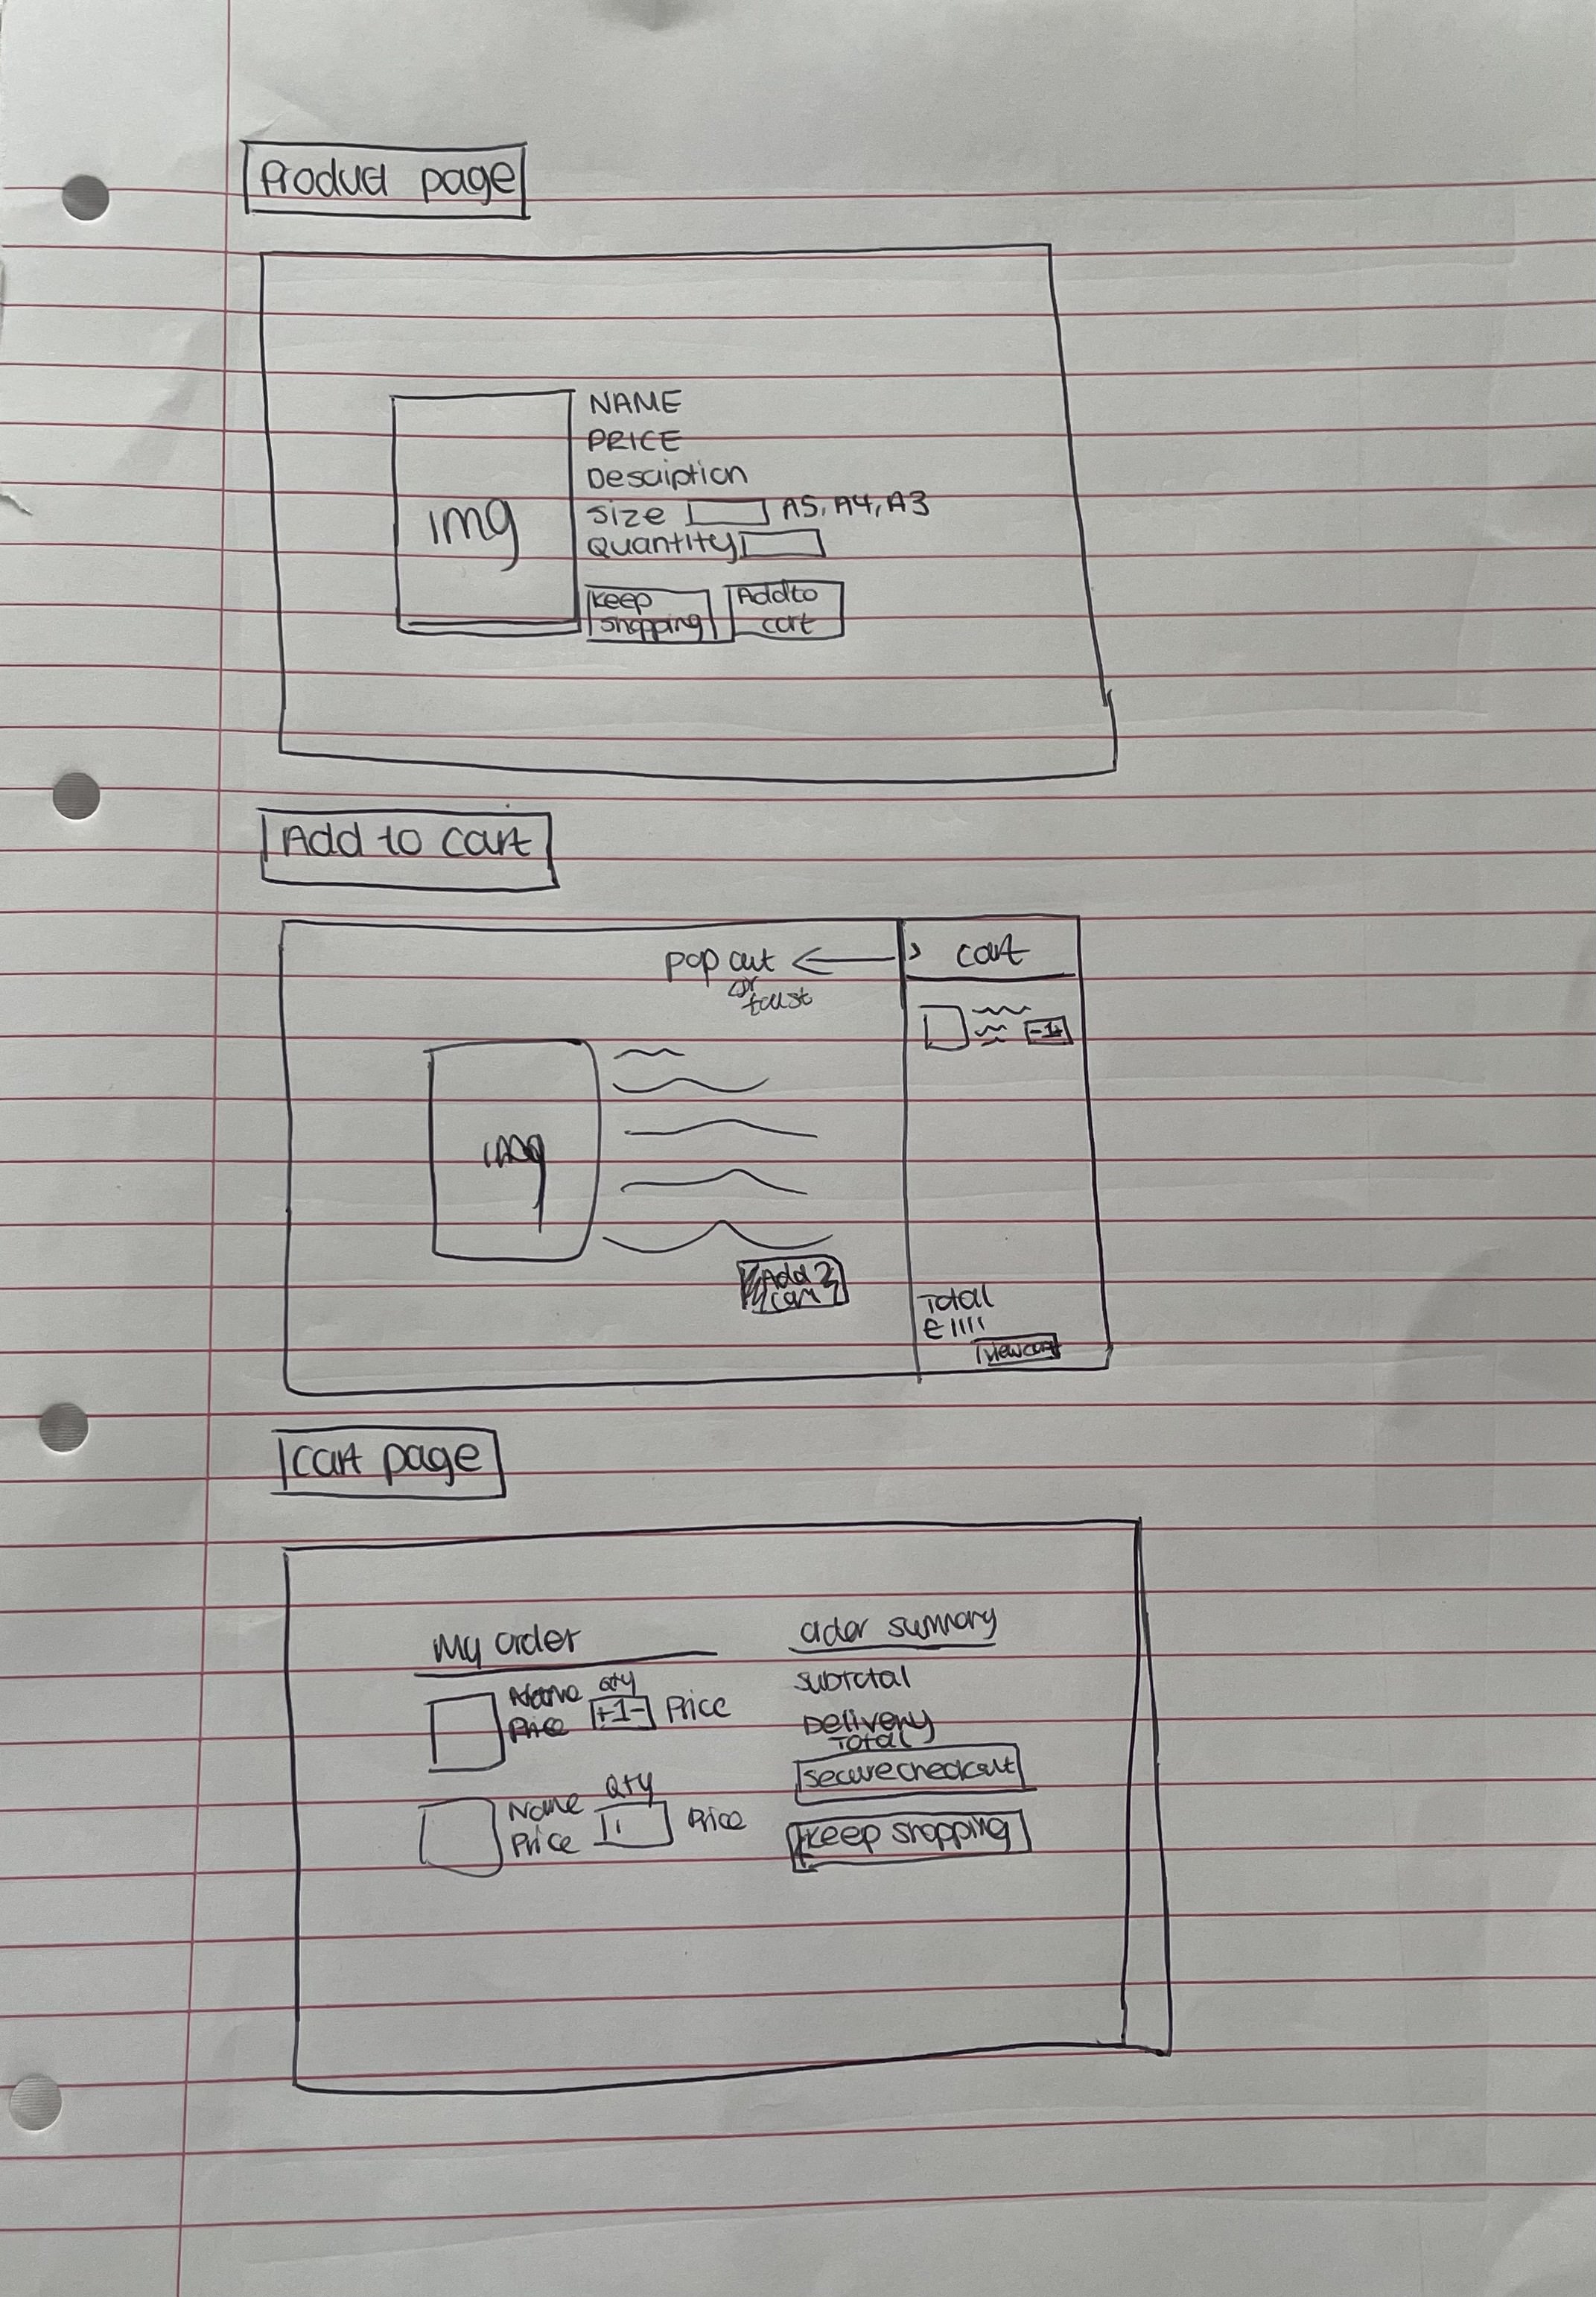 Product page
NAME
PRICE
Description
img
size A5, A4, A3
Quantity
Keep shopping
Add to cart
Add to cart
pop out
or
toast
> cart
-1+
img
Add 2 cart
Total
£
View cart
Cart page
My order
Name Qty
Price +1- Price
Name Qty
Price Price
order summary
subtotal
Delivery
Total
secure checkout
keep shopping